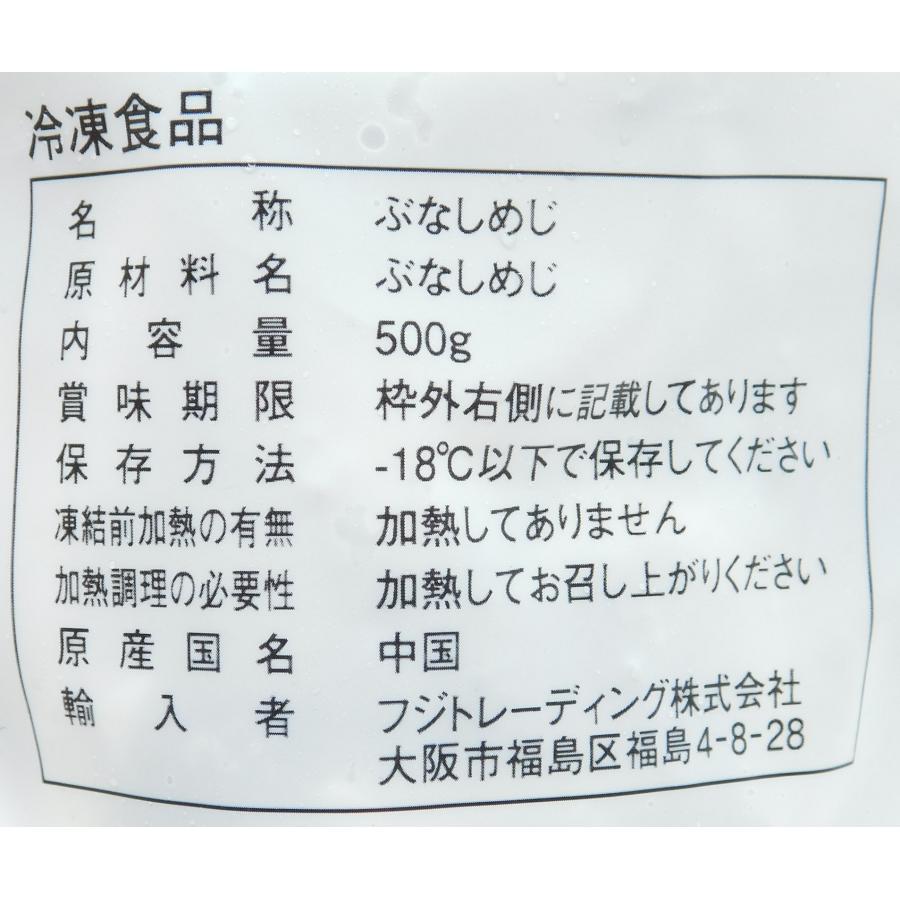 冷凍食品
名称 ぶなしめじ
原材料名 ぶなしめじ
内容量 500g
賞味期限 枠外右側に記載してあります
保存方法 -18℃以下で保存してください
凍結前加熱の有無 加熱してありません
加熱調理の必要性 加熱してお召し上がりください
原産国名 中国
輸入者 フジトレーディング株式会社
大阪市福島区福島4-8-28